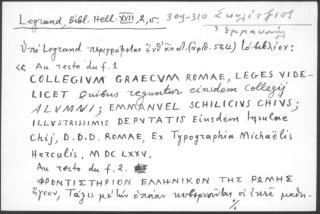 Legrand, Bibl. Hell. XVII, 2, σ. 309-310 Σκυλίτζιος
Ἐμμανουήλ
Ὑπὸ Legrand περιγράφεται ἐνθ' ἀν. (ἀριθ. 524) τὸ βιβλίον:
« Au recto du f. 1
COLLEGIVM GRAECVM ROMAE, LEGES VIDE-
LICET Quibus reguntur eiusdem Collegij
ALVMNI; EMMANVEL SCHILICIVS CHIVS;
ILLVSTRISSIMIS DEPVTATIS Eiusdem Insulae
Chij, D.D.D. ROMAE, Ex Typographia Michaëlis
Herculis. M DC LXXV.
Au recto du f. 2.
ΦΡΟΝΤΙΣΤΗΡΙΟΝ ΕΛΛΗΝΙΚΟΝ ΤΗΣ ΡΩΜΗΣ
ἤγουν, Τάξις μὲ τὴν ὁποίαν κυβερνῶνται οἱ ἐκεῖ μαθη-
./.